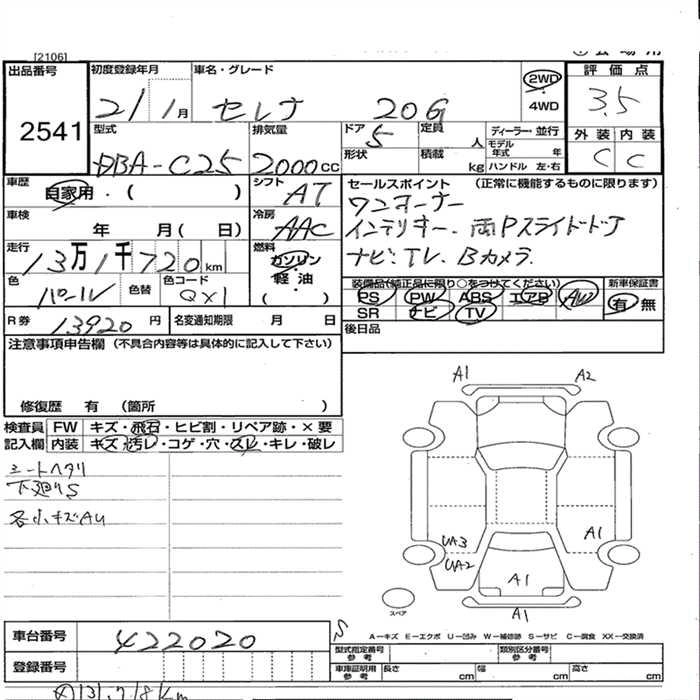 [2106]
出品番号
2541
初度登録年月
21/1月
車名・グレード
セレナ 20G
2WD
4WD
評価点
3.5
外装 内装
C C
型式
DBA-C25
排気量
2000cc
ドア
5
形状
定員
人
積載
kg
ディーラー・並行
モデル年式 年
ハンドル 左・右
車歴
自家用・( )
シフト
AT
セールスポイント (正常に機能するものに限ります)
ワンオーナー
インテリキー、両Pスライドドア
ナビ、TV、Bカメラ
車検
年 月( 日)
冷房
AAC
走行
13万1千720km
燃料
ガソリン
軽油
( )
色
パール
色替
色コード
QX1
装備品(純正品に限り○をつけてください)
PS PW ABS エアB AW
SR ナビ TV
新車保証書
有 無
R券
13920円
名変通知期限 月 日
後日品
注意事項申告欄 (不具合内容等は具体的に記入して下さい)
修復歴 有 (箇所 )
検査員 FW キズ・飛石・ヒビ割・リペア跡・×要
記入欄 内装 キズ・汚レ・コゲ・穴・スレ・キレ・破レ
シートヘタリ
下廻りS
各小キズAU
A1 A2
UA3
UA2
A1
A1
A1
スペア
S
A−キズ E−エクボ U−凹み W−補修跡 S−サビ C−腐食 XX−交換済
車台番号
422020
登録番号
型式指定番号
参考
類別区分番号
参考
車庫証明用
参考
長さ cm 幅 cm 高さ cm
131,718km